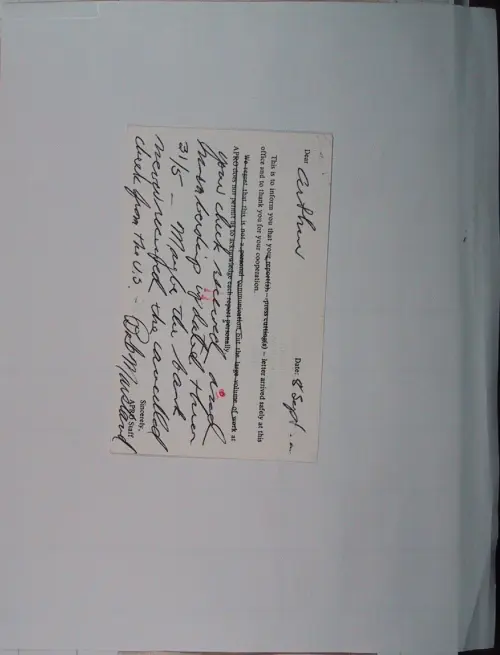 Date: 8 Sept.
Dear Arthur
This is to inform you that your report(s) - press cutting(s) - letter arrived safely at this
office and to thank you for your cooperation.
We regret that this is not a personal communication, but the large volume of work at
APRO does not permit us to acknowledge each report personally.
your check received and
membership updated thru
31/5 - Maybe the bank
the cancelled
check from the U.S. -
Sincerely,
APRO Staff